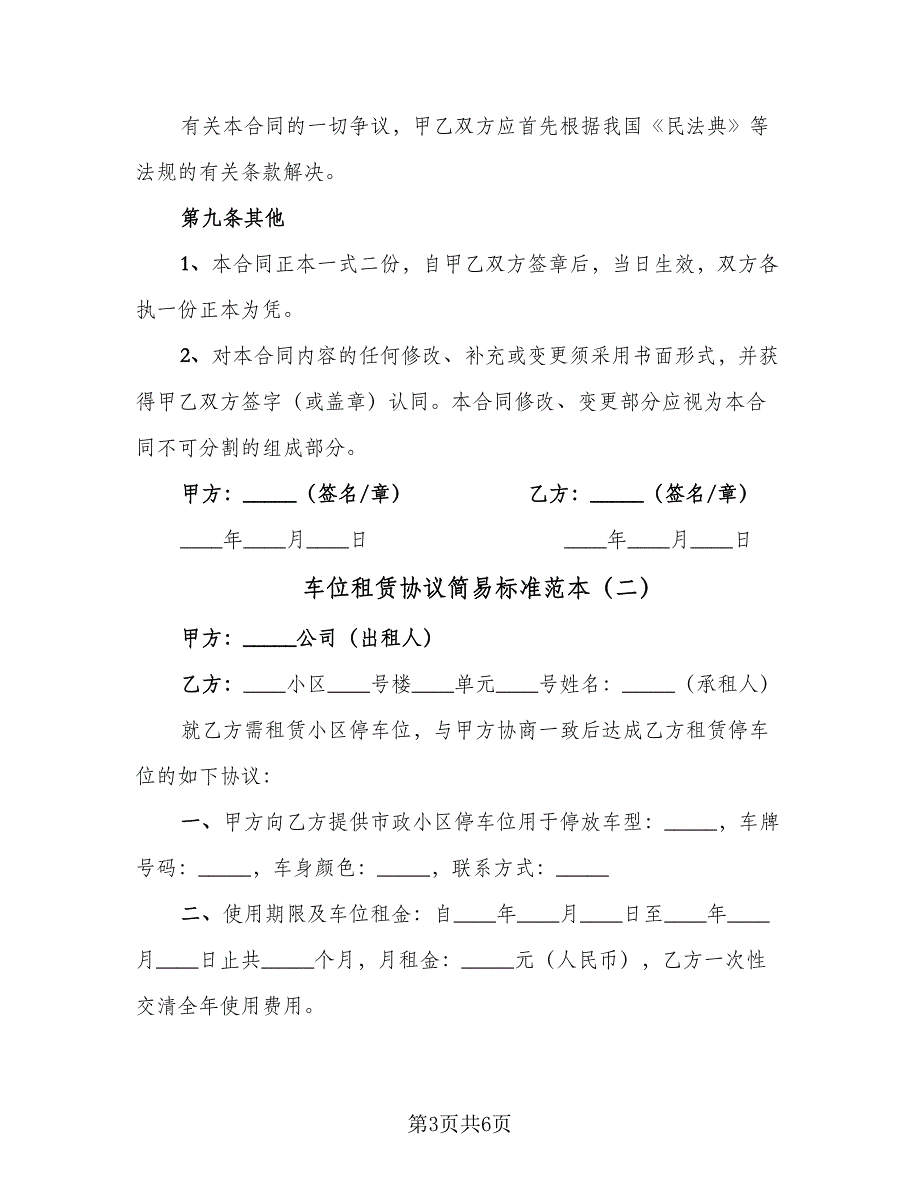 有关本合同的一切争议，甲乙双方应首先根据我国《民法典》等
法规的有关条款解决。
第九条其他
1、本合同正本一式二份，自甲乙双方签章后，当日生效，双方各
执一份正本为凭。
2、对本合同内容的任何修改、补充或变更须采用书面形式，并获
得甲乙双方签字（或盖章）认同。本合同修改、变更部分应视为本合
同不可分割的组成部分。
甲方：_____（签名/章） 乙方：_____（签名/章）
____年____月____日 ____年____月____日
车位租赁协议简易标准范本（二）
甲方：_____公司（出租人）
乙方：____小区____号楼____单元____号姓名：_____（承租人）
就乙方需租赁小区停车位，与甲方协商一致后达成乙方租赁停车
位的如下协议：
一、甲方向乙方提供市政小区停车位用于停放车型：_____，车牌
号码：_____，车身颜色：_____，联系方式：_____
二、使用期限及车位租金：自____年____月____日至____年____
月____日止共_____个月，月租金：_____元（人民币），乙方一次性
交清全年使用费用。
第3页共6页